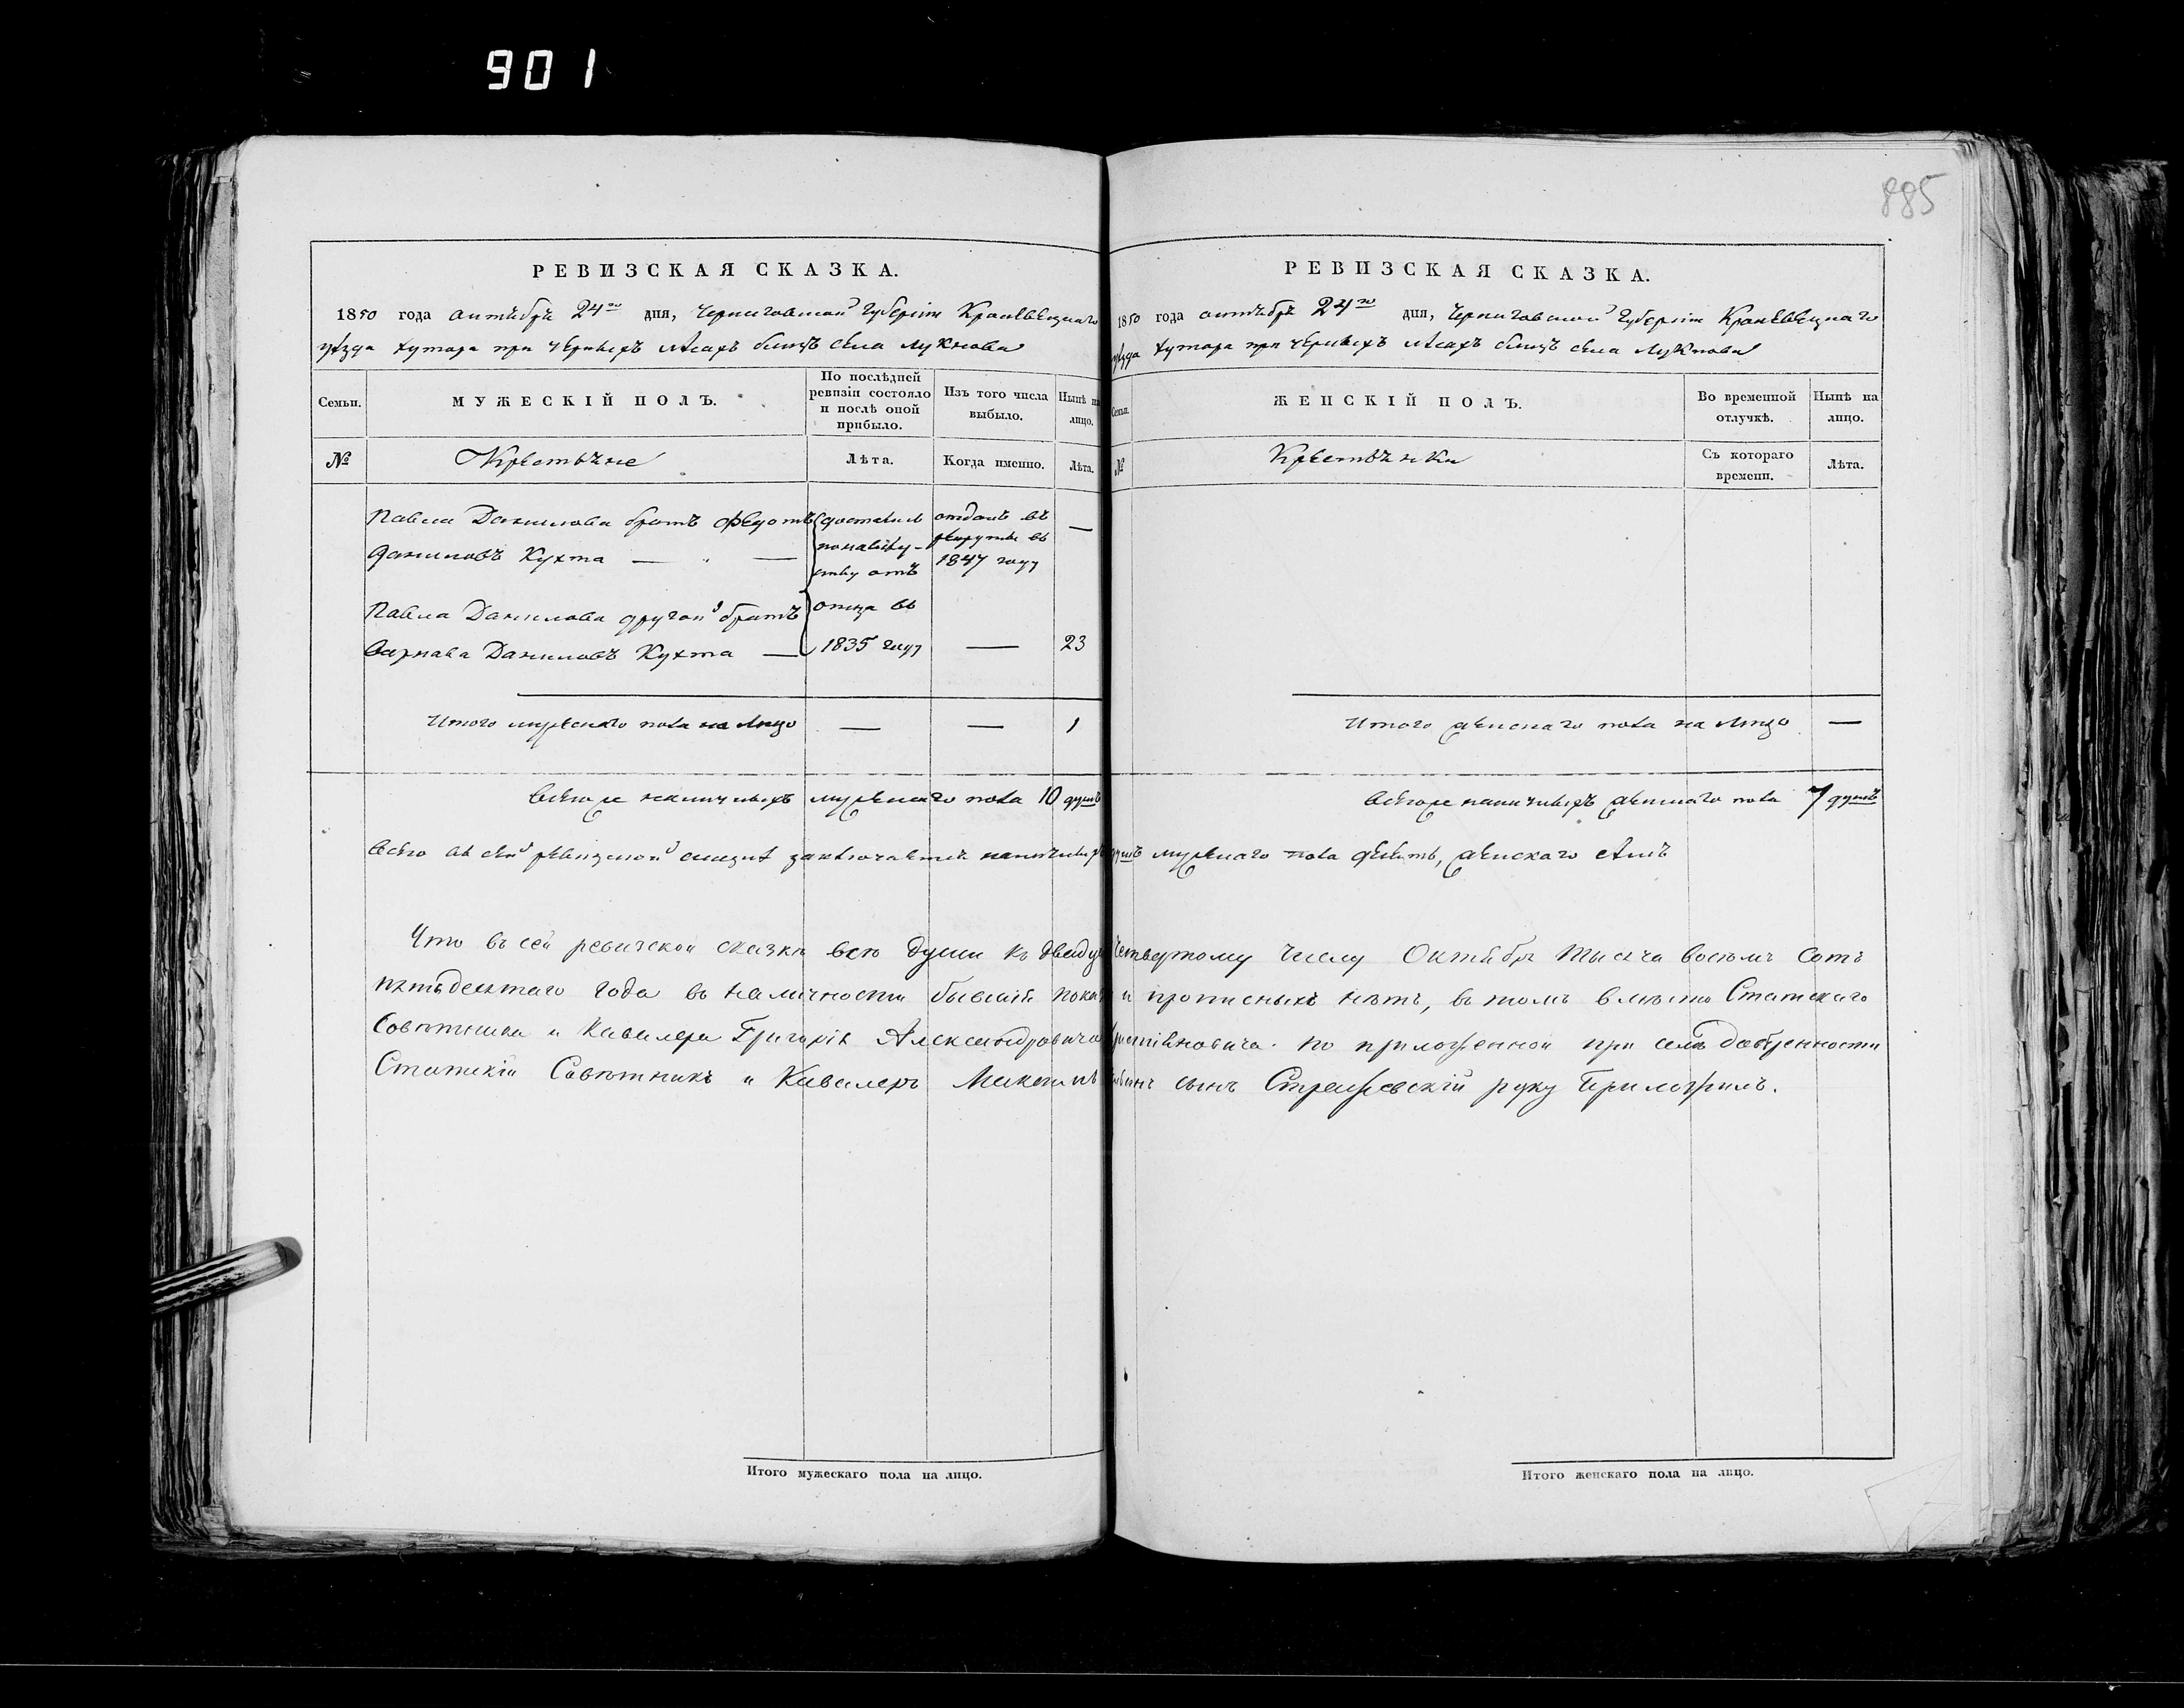 901
885
РЕВИЗСКАЯ СКАЗКА.
1850 года октября 24го дня, Черниговской Губерніи Кролевецкаго
уѣзда хутора при Черныхъ лѣсахъ близъ села Лукнова
Семьи.
МУЖЕСКІЙ ПОЛЪ.
По послѣдней ревизіи состояло и послѣ оной прибыло.
Изъ того числа выбыло.
Нынѣ на лицо.
№
Крестьяне
Лѣта.
Когда именно.
Лѣта.
Павла Данилова братъ Федотъ
Даниловъ Кухта — " —
достались
по наслѣд-
ству отъ
отца въ
1835 году
отданъ въ
рекруты въ
1847 году
—
Павла Данилова другой братъ
Варнава Даниловъ Кухта —
—
23
Итого мужескаго пола на лицо — — 1
Всѣхъ же наличныхъ мужескаго пола 10 душъ
РЕВИЗСКАЯ СКАЗКА.
1850 года октября 24го дня, Черниговской Губерніи Кролевецкаго
уѣзда хутора при Черныхъ лѣсахъ близъ села Лукнова
Семьи.
ЖЕНСКІЙ ПОЛЪ.
Во временной отлучкѣ.
Нынѣ на лицо.
№
Крестьянки
Съ котораго времени.
Лѣта.
Итого женскаго пола на лицо —
Всѣхъ же наличныхъ женскаго пола 7 душъ
Всего въ сей ревизской сказкѣ заключается наличныхъ душъ мужескаго пола десять, женскаго семь
Что въ сей ревизской сказкѣ всѣ души къ двадцать четвертому числу Октября тысяча восемь сотъ
пятьдесятаго года въ наличности бывшія показаны и прописныхъ нѣтъ, въ томъ вмѣсто Статскаго
Совѣтника и Кавалера Григорія Александровича по приложенной при семъ довѣренности
Статскій Совѣтникъ и Кавалеръ сынъ Стражевскій руку приложилъ.
Итого мужескаго пола на лицо.
Итого женскаго пола на лицо.